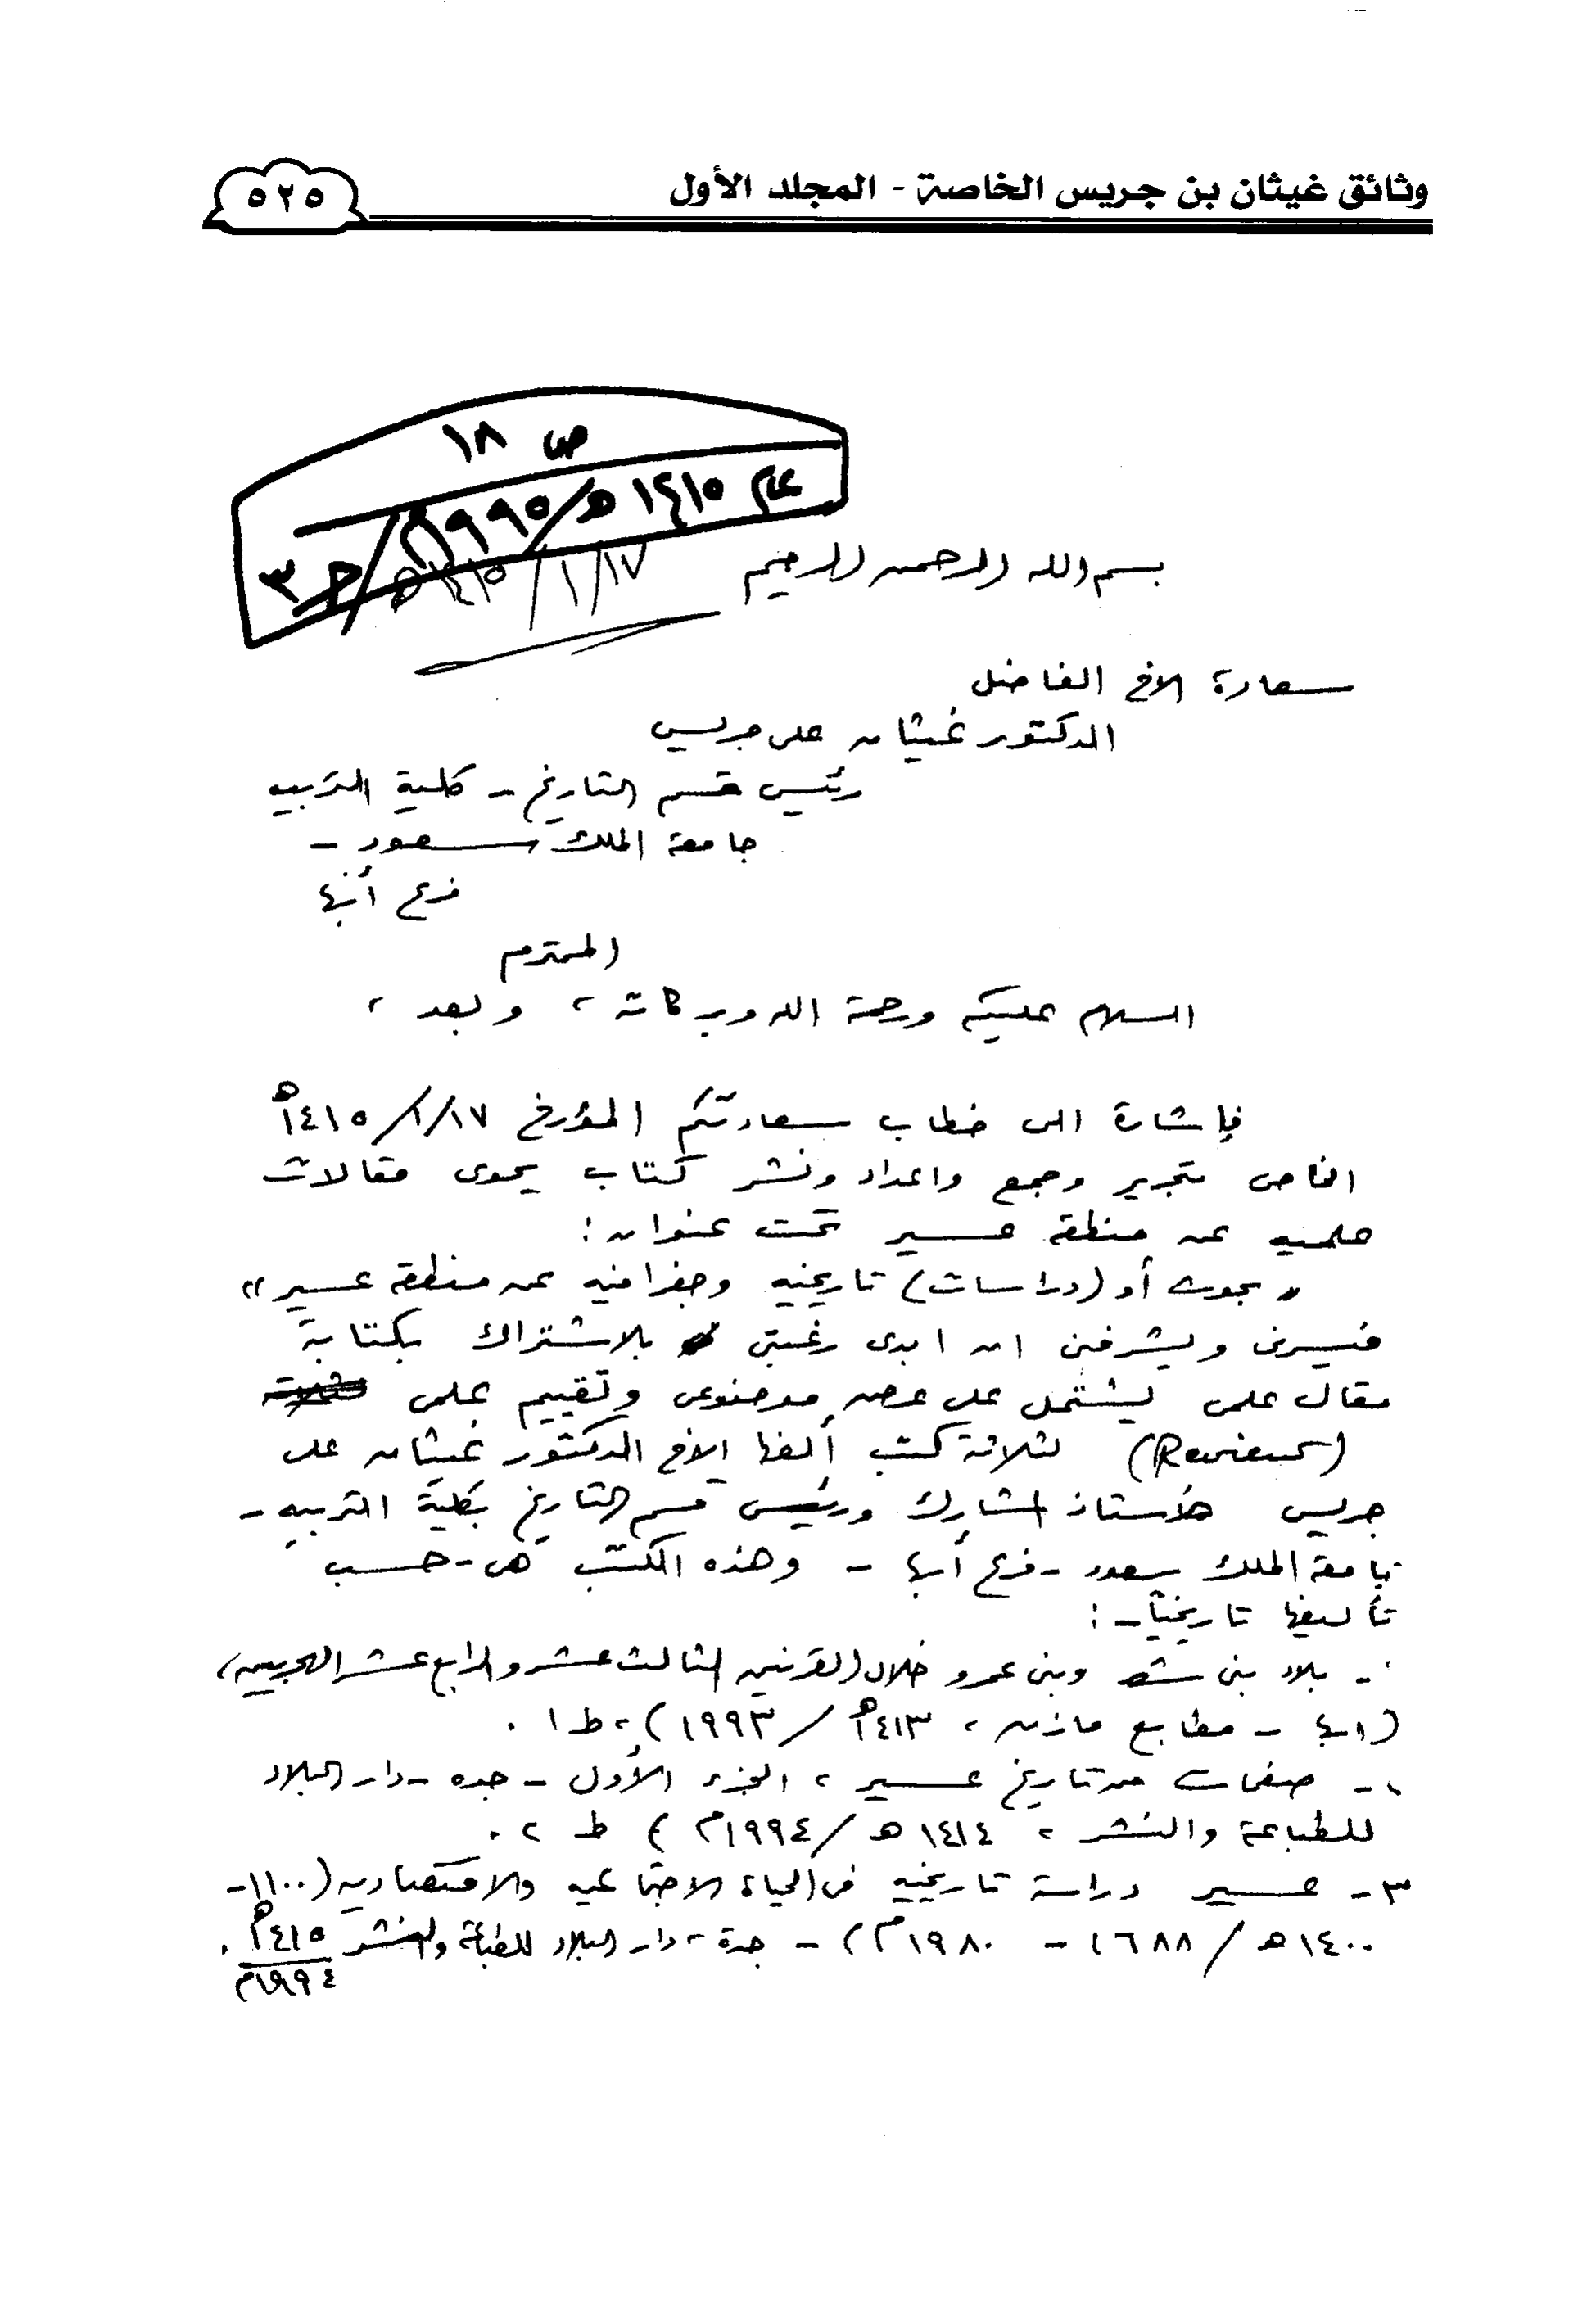 وثائق غيثان بن جريس الخاصة - المجلد الأول
٥٢٥
ص ١٨
عام ١٤١٥هـ/١٩٩٥م/جـ٣
١٤١٥/١/١٧هـ
بسم الله الرحمن الرحيم
سعادة الاخ الفاضل
الدكتور غيثان على جريس
رئيس قسم التاريخ - كلية التربيه
جامعة الملك سعود -
فرع أبها
المحترم
السلام عليكم ورحمة الله وبركاته، وبعد،
فإشارة الى خطاب سعادتكم المؤرخ ١٤١٥/١/١٧هـ
الخاص بتحرير وجمع واعداد ونشر كتاب يحوى مقالات
علميه عن منطقة عسير تحت عنوان:
"بحوث أو (دراسات) تاريخيه وجغرافيه عن منطقة عسير"
فيسرنى ويشرفنى ان ابدى رغبتى بالاشتراك بكتابة
مقال علمى يشتمل على عرض موضوعى وتقييم علمى
(Reviews) لثلاثة كتب ألفها الاخ الدكتور غيثان على
جريس الأستاذ المشارك ورئيس قسم التاريخ بكلية التربيه -
جامعة الملك سعود - فرع أبها - وهذه الكتب هى - حسب
تأليفها تاريخياً - :
١- بلاد بنى شهر وبنى عمرو خلال القرنين الثالث عشر والرابع عشر الهجريين،
(ابها - مطابع مازن، ١٤١٣هـ/١٩٩٣)، ط ١.
٢- صفحات من تاريخ عسير، الجزء الأول - جده - دار البلاد
للطباعة والنشر، ١٤١٤هـ/١٩٩٤م) ط ٢.
٣- عسير دراسة تاريخيه فى الحياة الاجتماعيه والاقتصاديه (١١٠٠-
١٤٠٠هـ/١٦٨٨ - ١٩٨٠م) - جدة، دار البلاد للطباعة والنشر ١٤١٥هـ.
١٩٩٤م